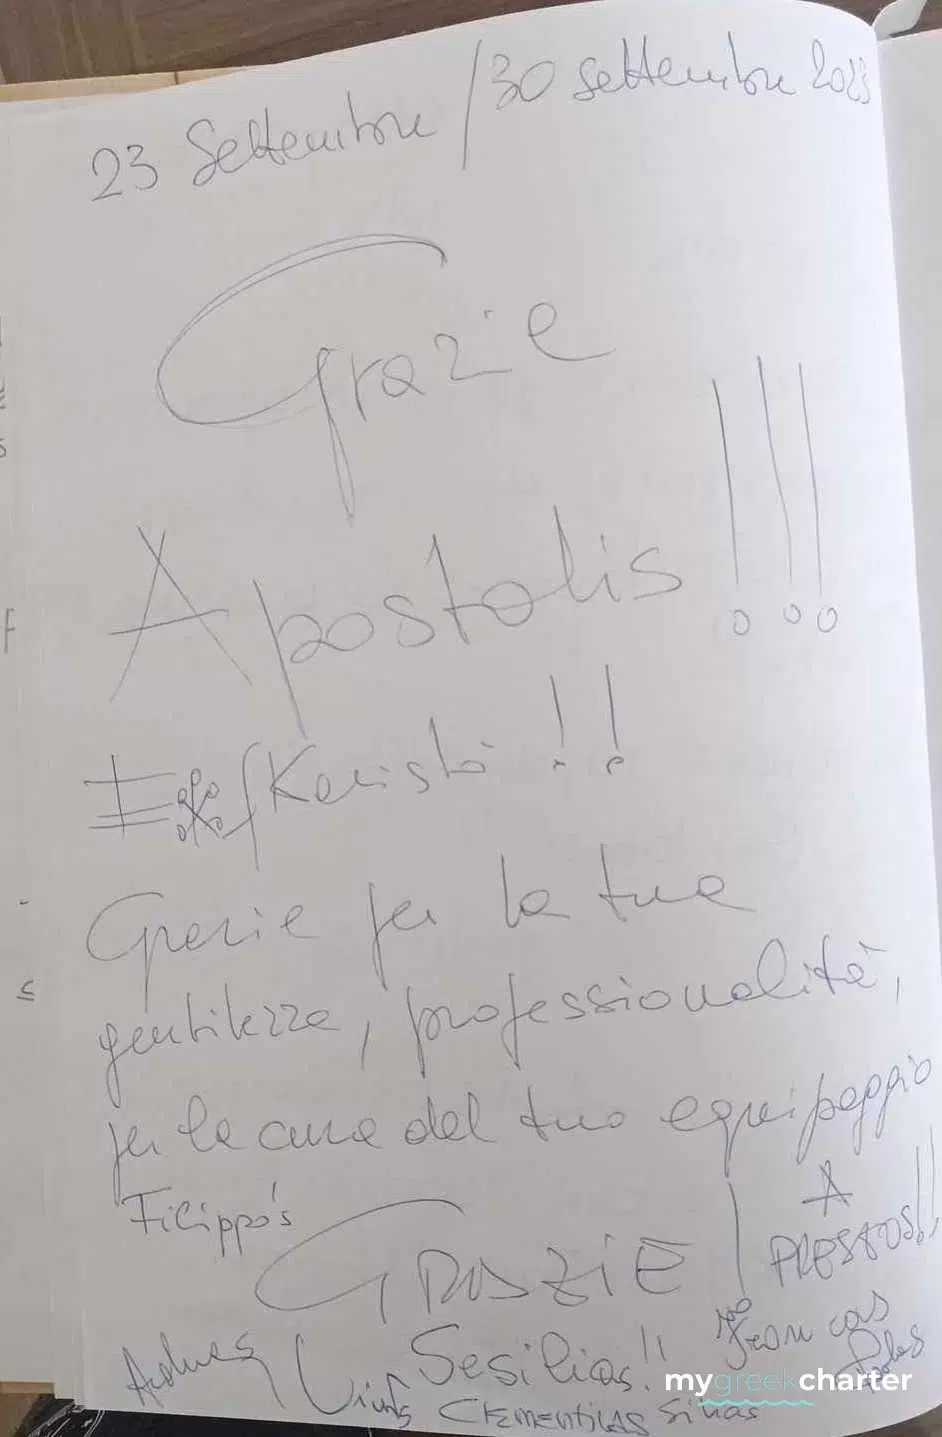 23 Settembre / 30 settembre 2023
Grazie
Apostolis !!!
Efkaristò !!
Grazie per la tua
gentilezza, professionalità,
per la cura del tuo equipaggio
Filippo's
GRAZIE ! A PRESTOS!!
Sesilias!!
Clementinas Silvas
mygreekcharter